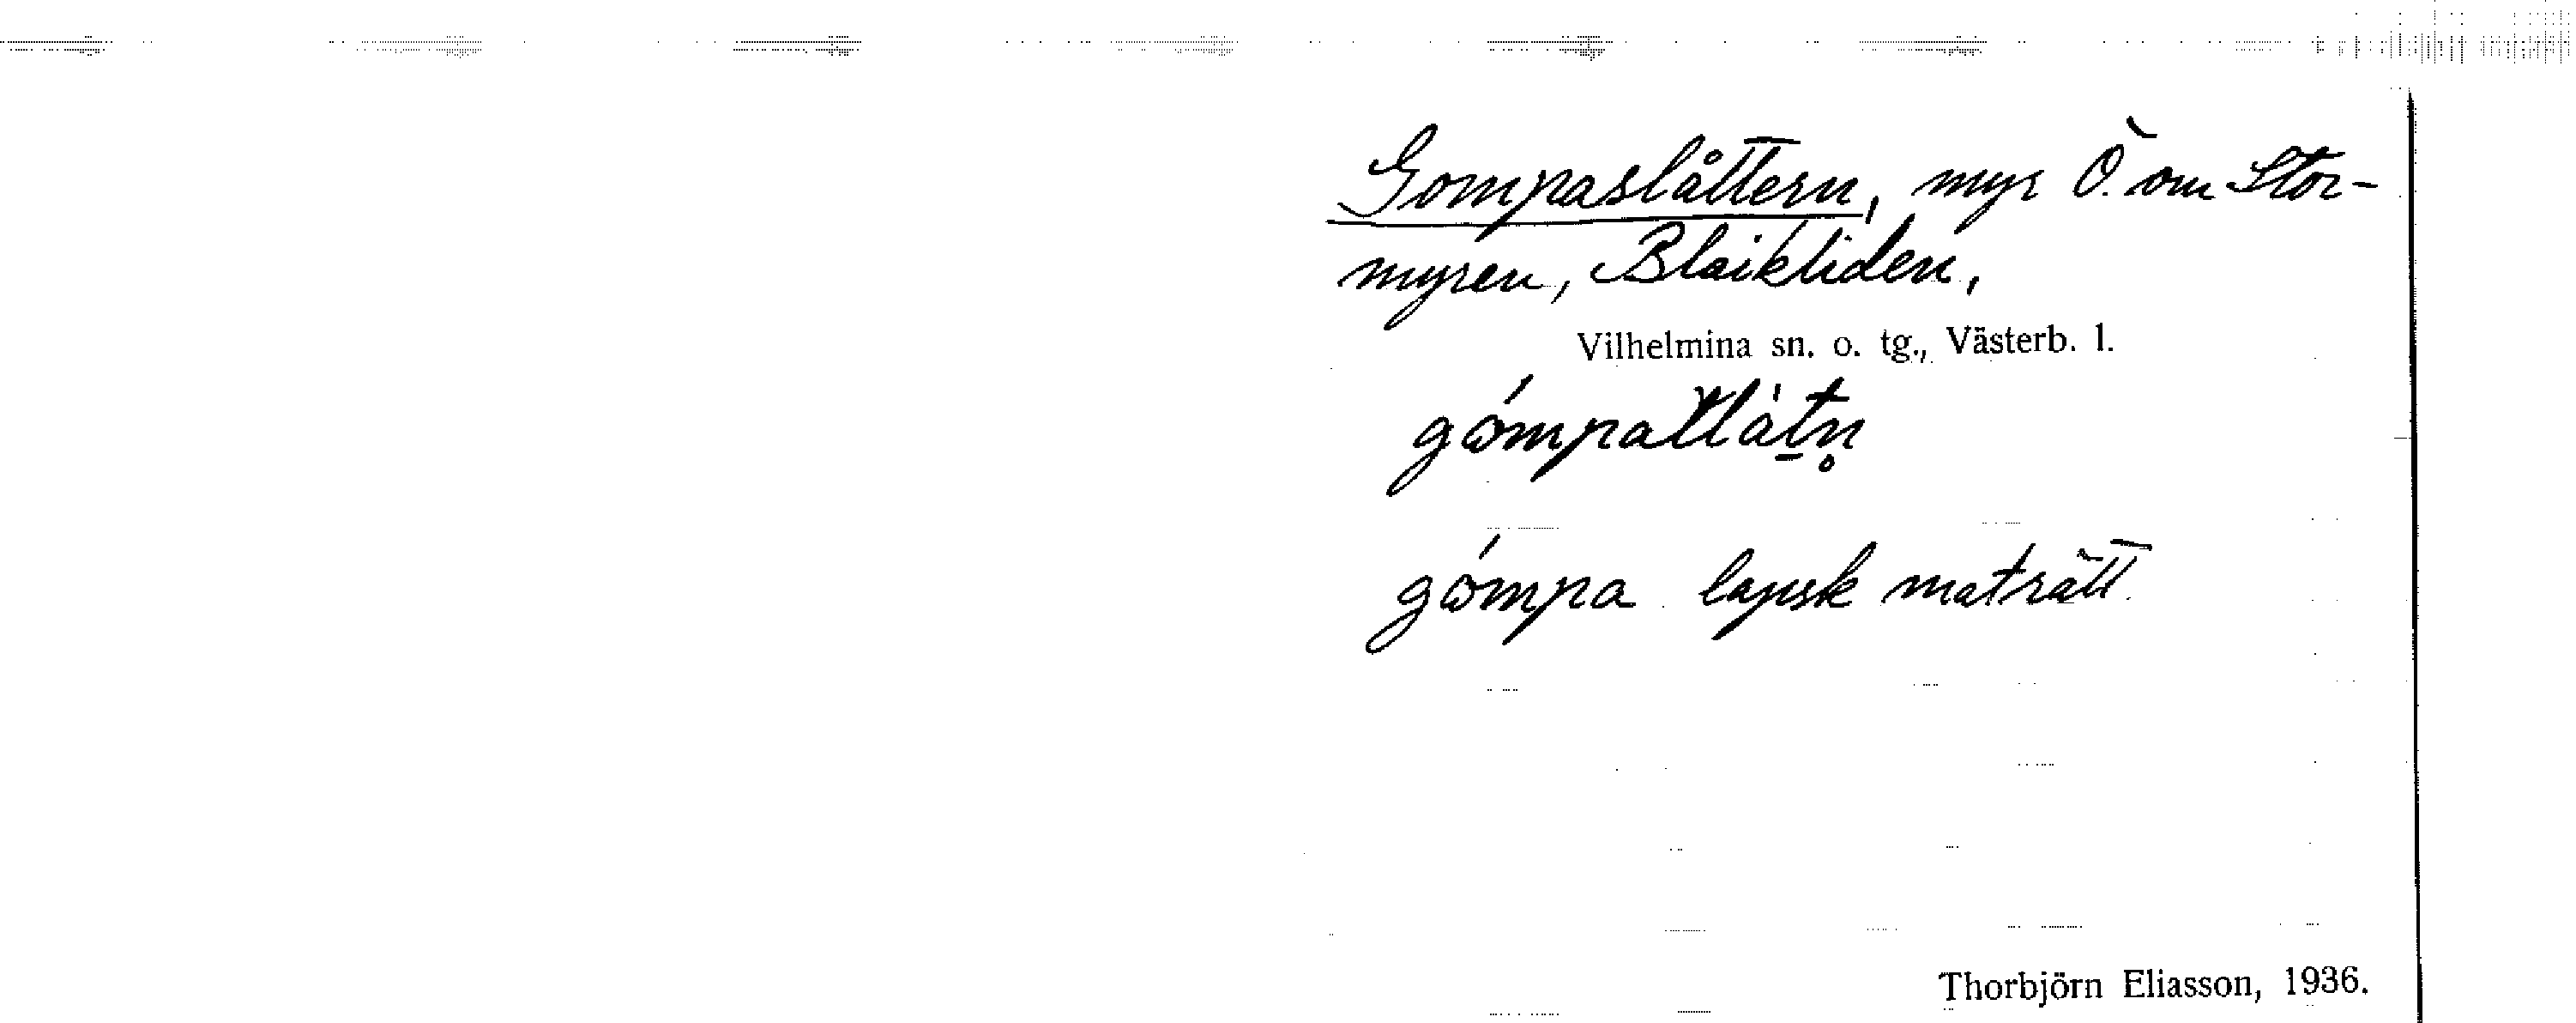 Gompaslåttern, myr Ö. om Stor-
myren, Blaikliden,
Vilhelmina sn. o. tg., Västerb. l.
gómpa lapsk maträtt.
Thorbjörn Eliasson, 1936.